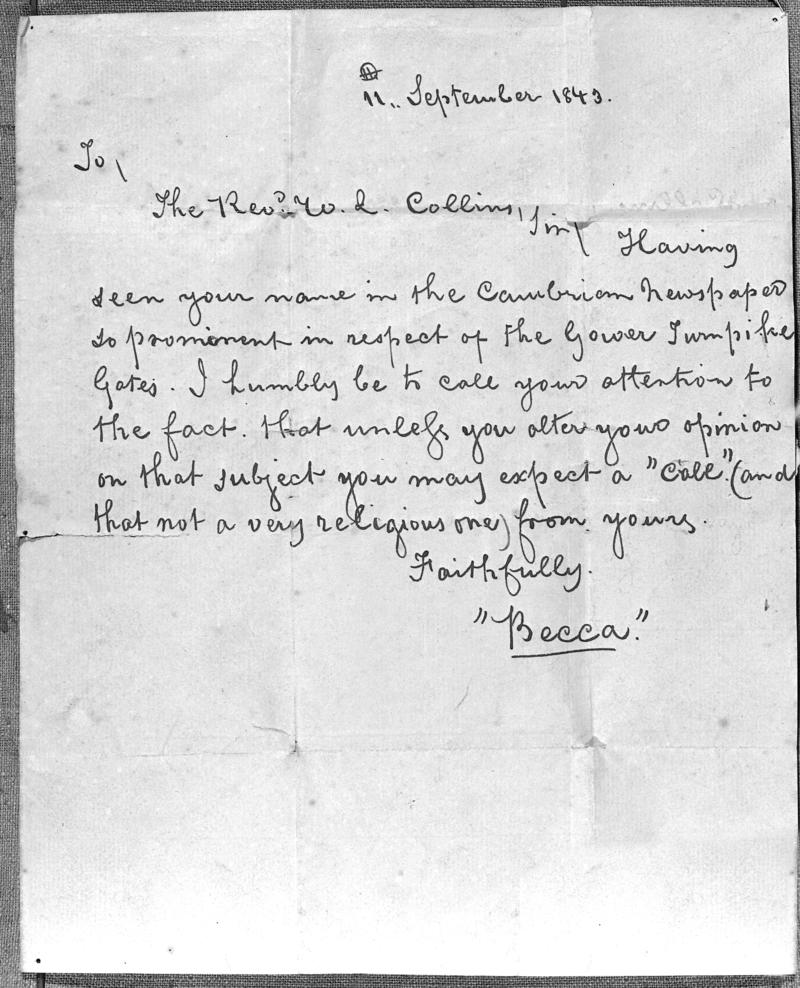 11. September 1843.
To
The Revd. W. L. Collins, Sir
Having
seen your name in the Cambrian Newspaper
so prominent in respect of the Gower Turnpike
Gates. I humbly be to call your attention to
the fact. that unless you alter your opinion
on that subject you may expect a "Call". (and
that not a very religious one) from yours.
Faithfully.
"Becca."